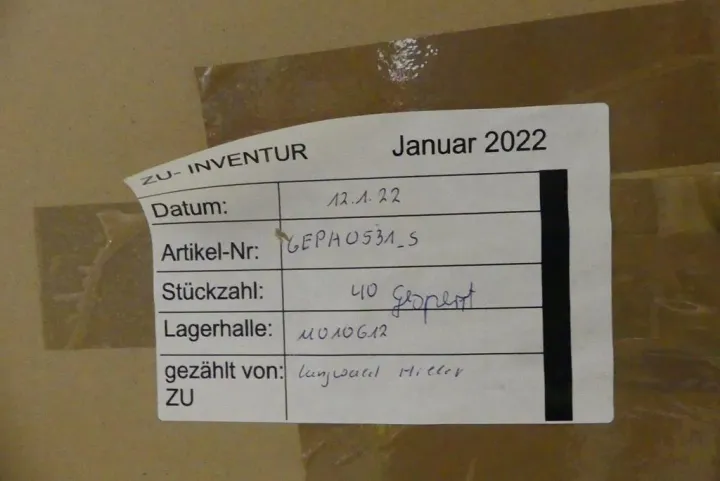 ZU- INVENTUR Januar 2022
Datum: 12.1.22
Artikel-Nr: GEPA0531_S
Stückzahl: 40 Gesperrt
Lagerhalle: M010612
gezählt von:
ZU